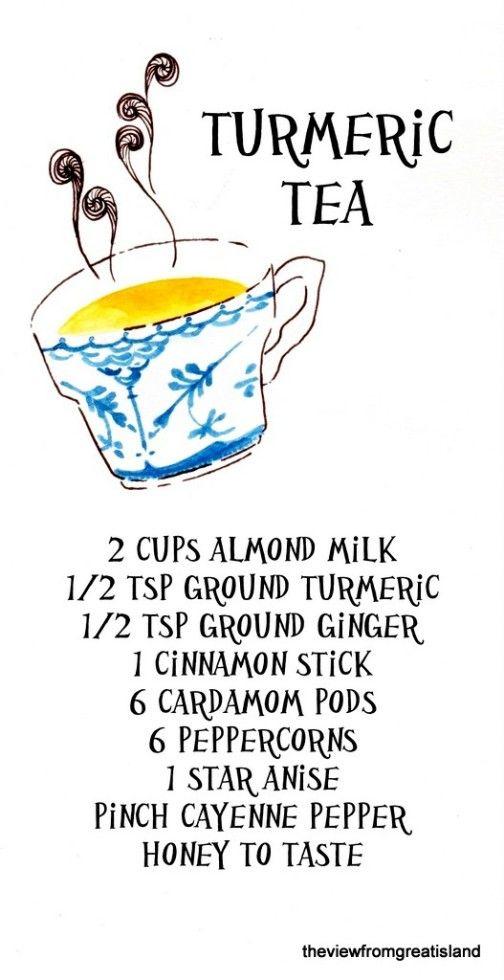 TURMERiC
TEA
2 CUPS ALMOND MiLK
1/2 TSP GROUND TURMERiC
1/2 TSP GROUND GiNGER
1 CiNNAMON STiCK
6 CARDAMOM PODS
6 PEPPERCORNS
1 STAR ANiSE
PiNCH CAYENNE PEPPER
HONEY TO TASTE
theviewfromgreatisland